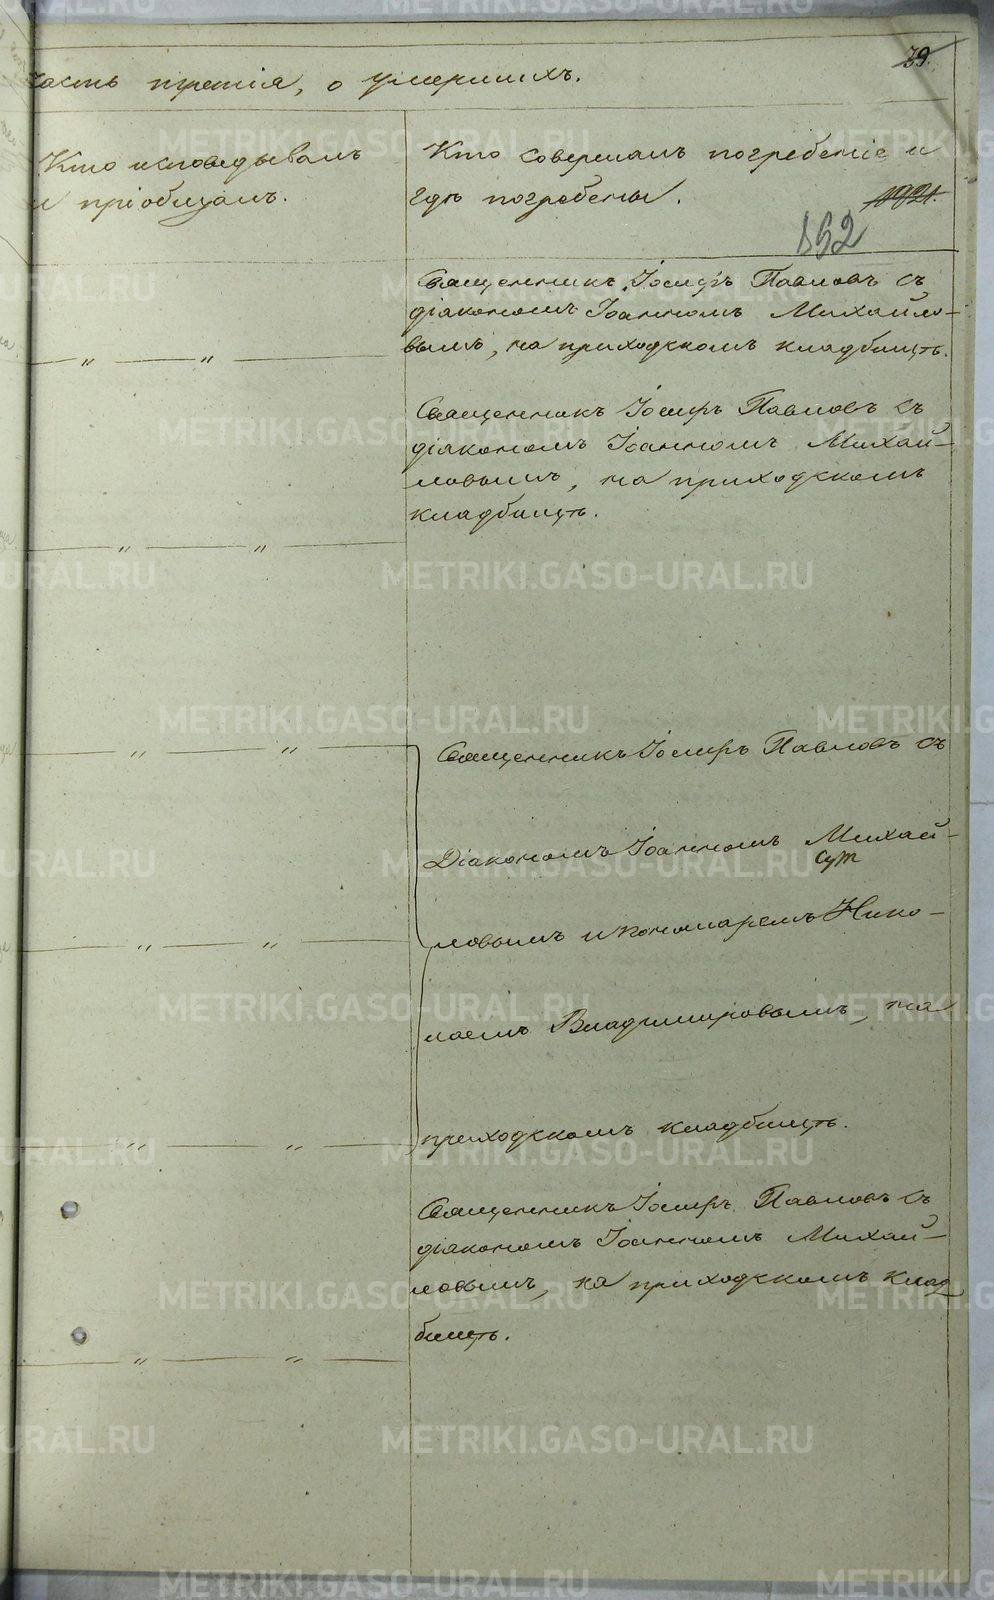 79.
часть третія, о умершихъ.
Кто исповѣдывалъ
и пріобщалъ.
Кто совершалъ погребеніе и
гдѣ погребены.
192
Священникъ Іосифъ Павловъ съ
діакономъ Іоанномъ Михайло-
вымъ, на приходскомъ кладбищѣ.
Священникъ Іосифъ Павловъ съ
діакономъ Іоанномъ Михай-
ловымъ, на приходскомъ
кладбищѣ.
Священникъ Іосифъ Павловъ съ
Діакономъ Іоанномъ Михай-
ловымъ и пономаремъ Нико-
лаемъ Владиміровымъ, на
приходскомъ кладбищѣ.
Священникъ Іосифъ Павловъ съ
діакономъ Іоанномъ Михай-
ловымъ, на приходскомъ клад
бищѣ.
METRIKI.GASO-URAL.RU